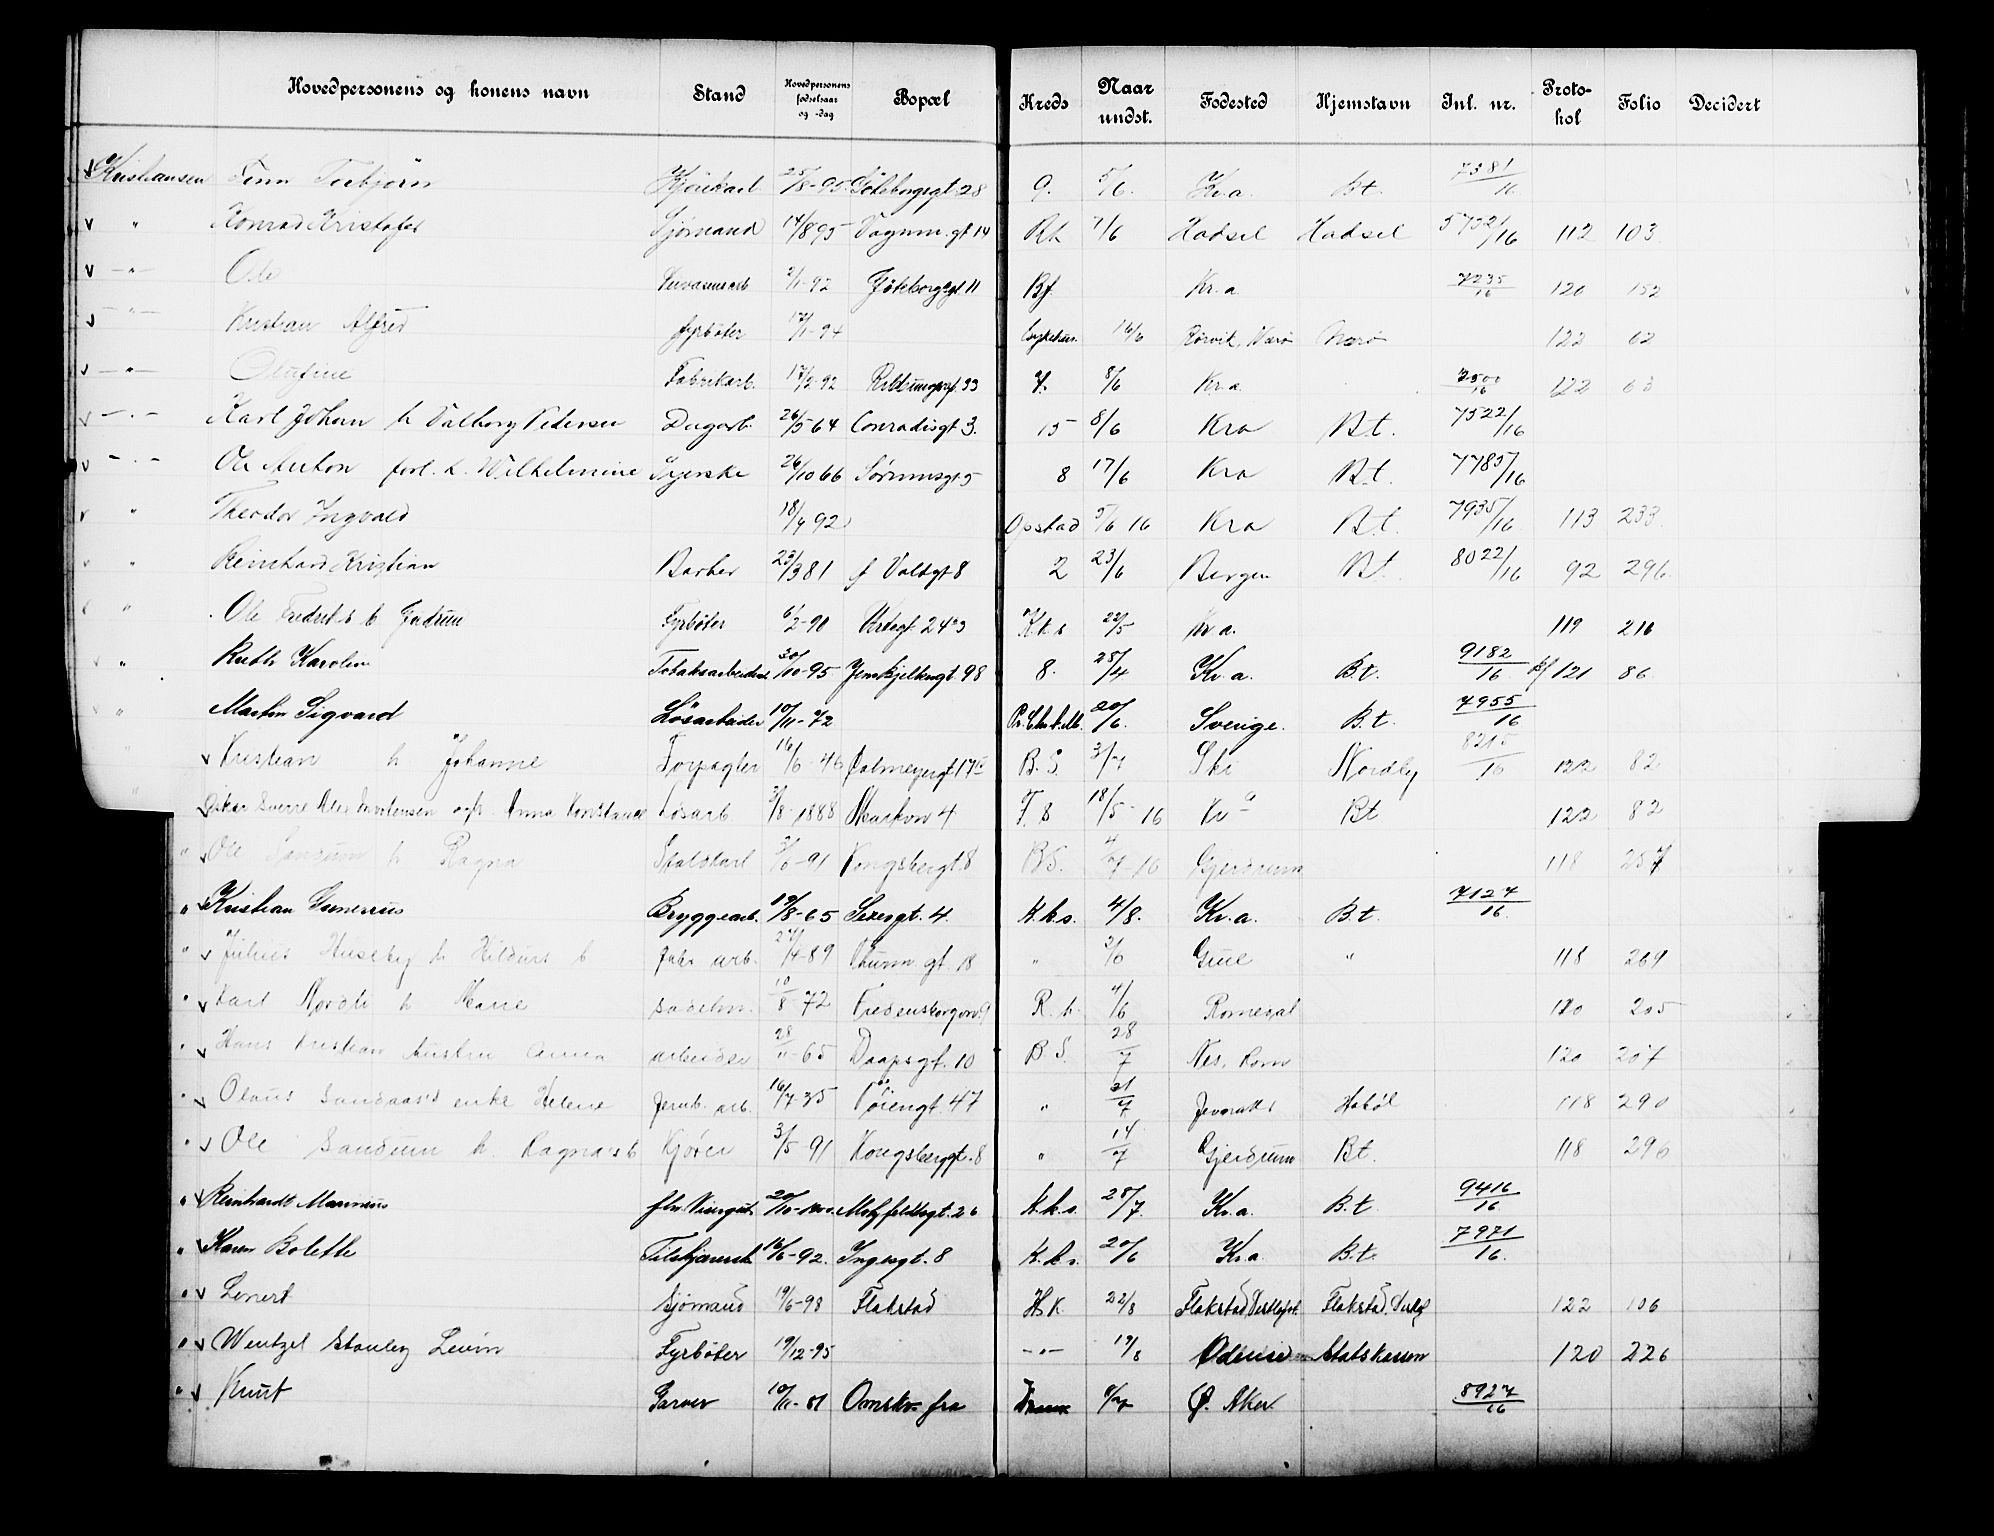 Hovedpersonens og konens navn Stand Hovedpersonens fødselsaar og -dag Bopæl Kreds Naar undst. Fødested Hjemstavn Inl. nr. Protokol Folio Decidert
Kristiansen Finn Torbjørn 25/8-95 Göteborggt 28 9. 5/6. Kr.a. Bt. 7381/16
" Konrad Kristofer Sjømand 14/8 95 Vognm. gt 14 Rh 7/6 Hadsel Hadsel 5732/16 112 103
" Ole 2/1-92 Göteborggt. 11 Bf. Kr.a 7235/16 120 152
" Kristian Alfred Fyrbøter 17/1-94 Sykehus. 16/6 Rørvik, Nærø Nærø 122 62
" Olufine Fabrikarb. 17/2-92 8/6 Kr.a 7500/16 122 63
" Karl Johan h Valborg Pedersen Dagarb. 26/5 64 Conradisgt 3. 15 8/6 Kra Bt. 7522/16
" Ole Anton forl. h. Wilhelmine Syerske 26/10 66 Sørumsgt 5 8 17/6 Kra Bt. 7785/16
" Theodor Ingvald 18/4 92 Opstad 5/6 16 Kra Bt. 7935/16 113 233
" Reinhard Kristian Barber 23/3 81 f Valdsgt 8 2 23/6 Bergen Bt. 8022/16 92 296
" Ole Fredrik's b Gudrun Fyrbøter 6/2-90 K.k.s 22/5 Kr.a. 119 216
" Ruth Karoline Tobaksarbeiderske 30/10-95 Jens Bjelkesgt. 98 8. 25/4 Kr.a. B.t. 9182/16 121 86
" Martin Sigvard Løsarbeider 10/11-72 20/6. Sverige. B.t. 7955/16
" Kristian h Johanne 16/6-46 Dalmeyergt 17 B.S. 3/7 Ski Nordby 8215/16 122 82
Oskar Sverre Alex Mortensen Anna Konstance Løsarb. 3/8-1888 Markvn 4 F.S 18/5-16 Kra Bt 122 82
" Ole Sandum h Ragna Staldkarl 3/5-91 Kongsberggt 8 B.S. 4/7-16 Gjerdrum 118 257
" Kristian Gunerius Bryggearb. 19/8-65 4. K.k.s. 4/8. Kr.a. B.t. 7127/16
" Julius Huseby h Hildurs b Fabr arb. 27/4-89 Thurm. gt 18 " Grue " 118 269
" Karl Nordli h Marie Sadelm. 10/8-72 Fredensborgvn 9 R.h. 4/6 Romedal 120 205
" Hans Kristian Austen Anna arbeider 28/11-65 Daapsgt. 10 B.S. 28/7 Nes, Rom 120 207
" Olaus Sandaas's enke Helene Jernb. arb. 16/7 35 Vøiengt. 47 " 21/7 Jevnaker Hobøl 118 290
" Ole Sandum h. Ragna's b Kjører 3/5-91 Kongsberggt. 8 " 14/7 Gjerdrum Bt. 118 296
" Reinhardt Marinius Motzfeldtsgt. 26 K.k.s. 25/7. Kr.a. B.t. 9416/16
" Karen Bolette Tilskjærerske 16/6-92. Ingersgt. 8 K.k.s. 20/6 Kr.a. B.t. 7971/16
" Lenert Sjømand 19/6-98 Flakstad H.K. 22/8 Flakstad, Flakstad, 122 106
" Wentzel Stanley Levin Fyrbøter 19/12-95 -"- 19/8 Odense Statskassen 120 226
" Knut Garver 10/11-81 Omskr. fra Ø. Aker 8927/16